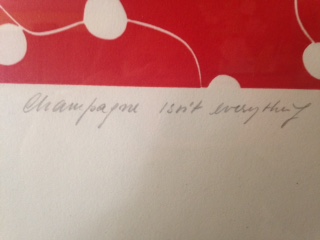 Champagne isn't everything